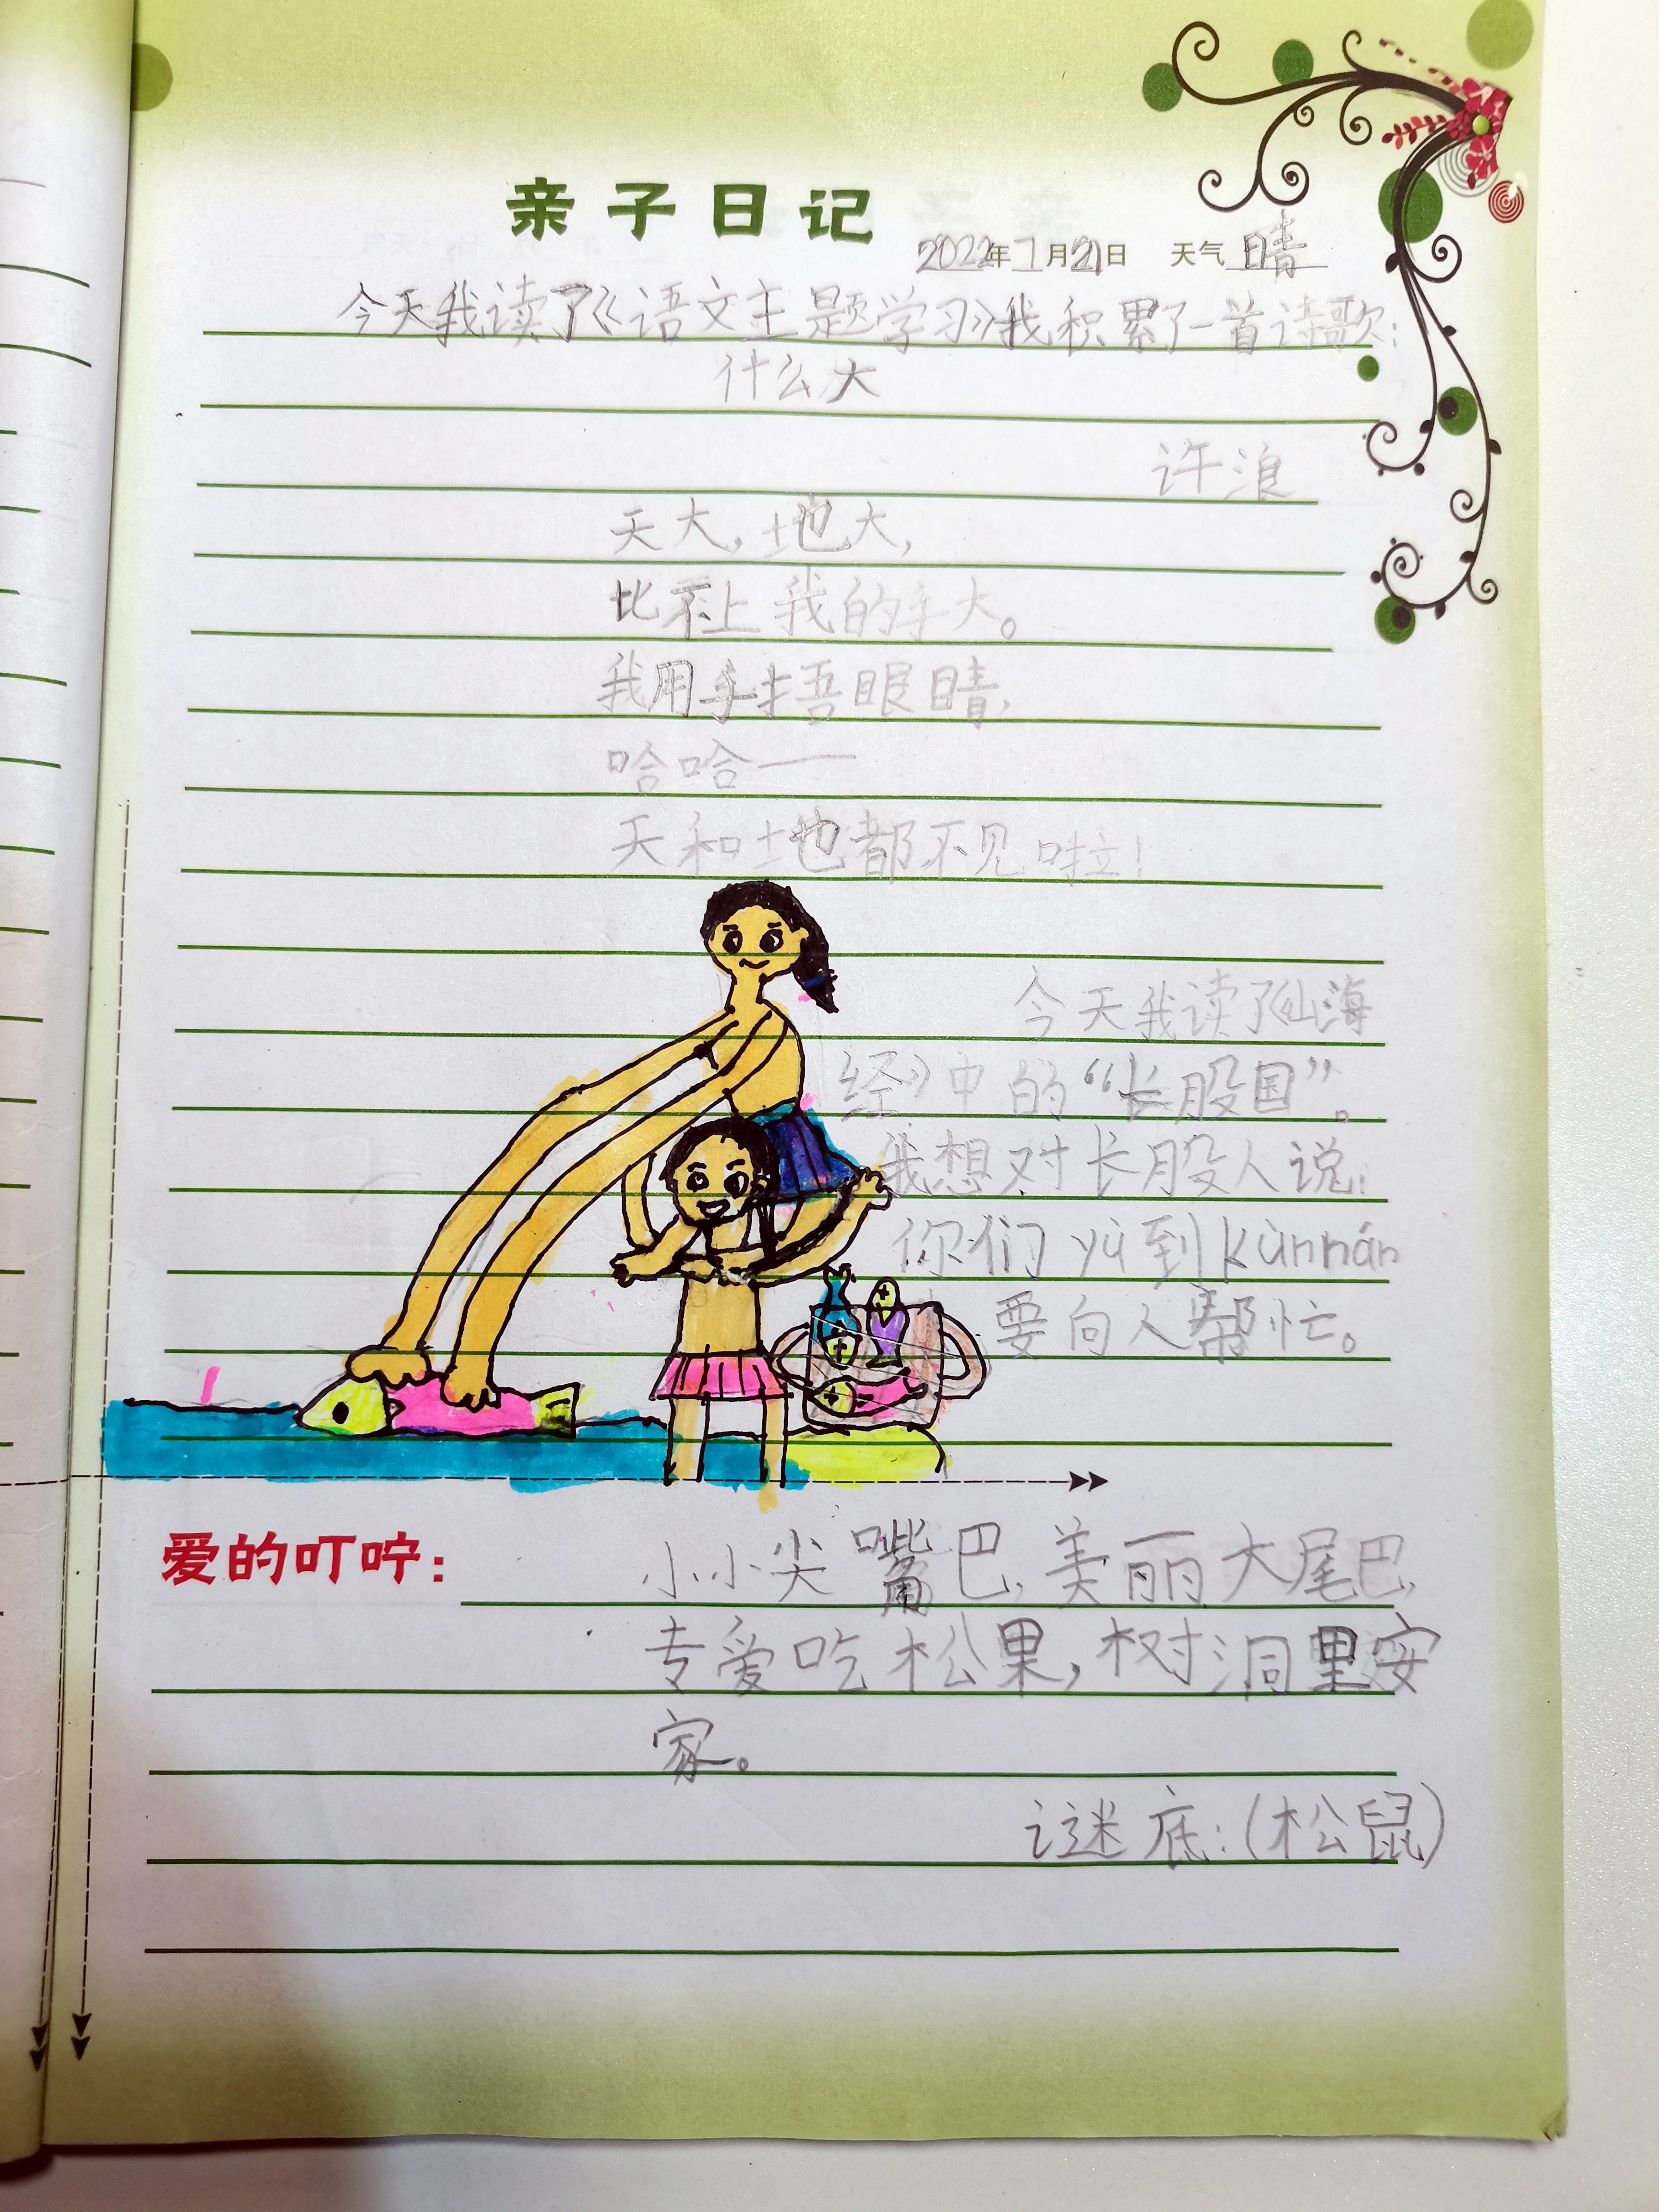 亲子日记
2022年7月21日 天气 晴
今天我读了《语文主题学习》我积累了一首诗歌:
什么大
许浪
天大,地大,
比不上我的手大。
我用手捂眼睛,
哈哈——
天和地都不见啦!
今天我读了《山海
经》中的“长股国”。
我想对长股人说:
你们 yù到 kùnnán
要向人帮忙。
爱的叮咛: 小小尖嘴巴,美丽大尾巴,
专爱吃松果,树洞里安
家。
谜底:(松鼠)